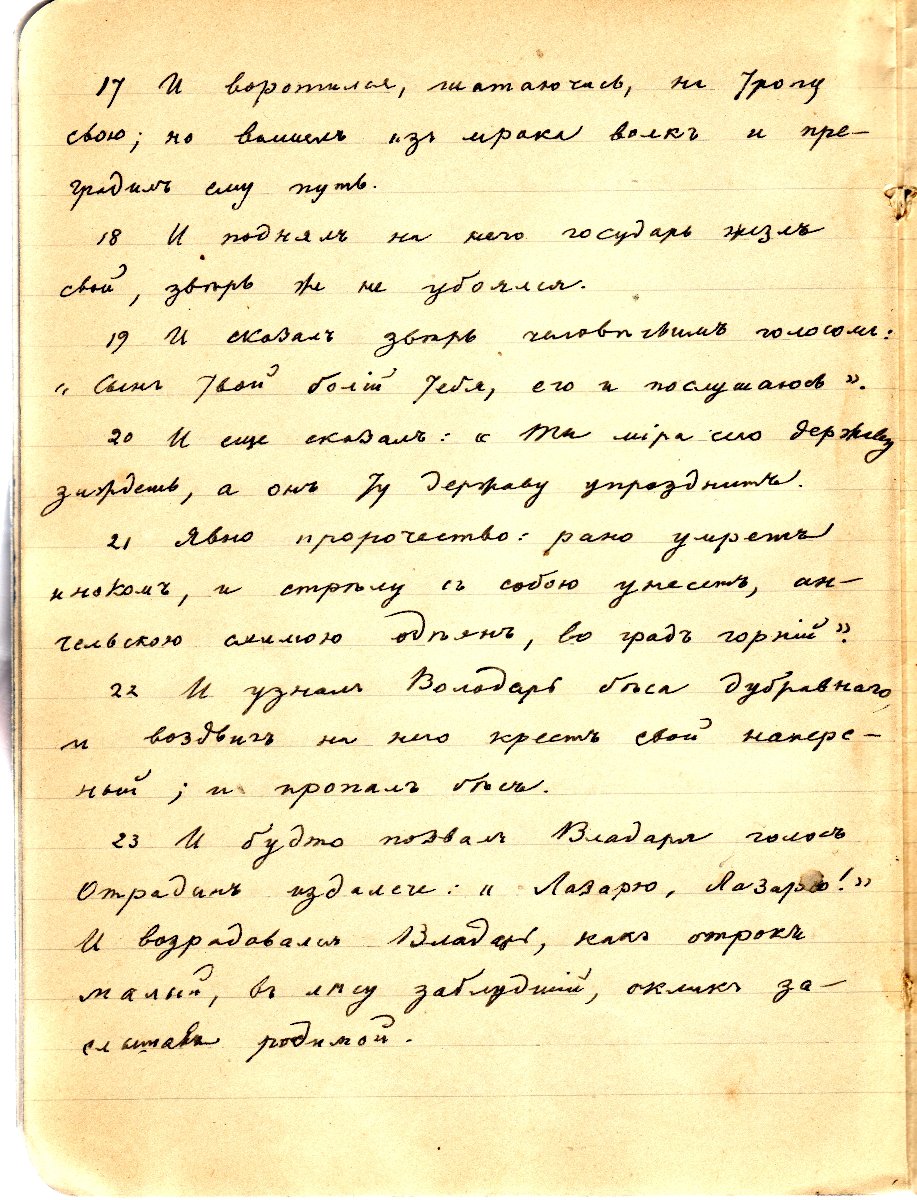 17 И воротился, шатаючись, на тропу
свою; но вышелъ изъ мрака волкъ и пре-
градилъ ему путь.
18 И поднялъ на него государь жезлъ
свой, звѣрь же не убоялся.
19 И сказалъ звѣрь человѣчьимъ голосомъ:
„Сынъ твой болій тебя, его и послушаюсь”.
20 И еще сказалъ: „Ты міра сего державу
зиждешь, а онъ ту державу упразднитъ.
21 Явно пророчество: рано умретъ
инокомъ, и стрѣлу съ собою унесетъ, ан-
гельскою схимою одѣянъ, во градъ горній”.
22 И узналъ Володарь бѣса дубравнаго,
и воздвигъ на него крестъ свой наперс-
ный; и пропалъ бѣсъ.
23 И будто позвалъ Владаря голосъ
Отрадинъ издалече: „Лазарю, Лазарю!”
И возрадовался Владарь, какъ отрокъ
малый, въ лѣсу заблудшій, окликъ за-
слышавъ родимой.